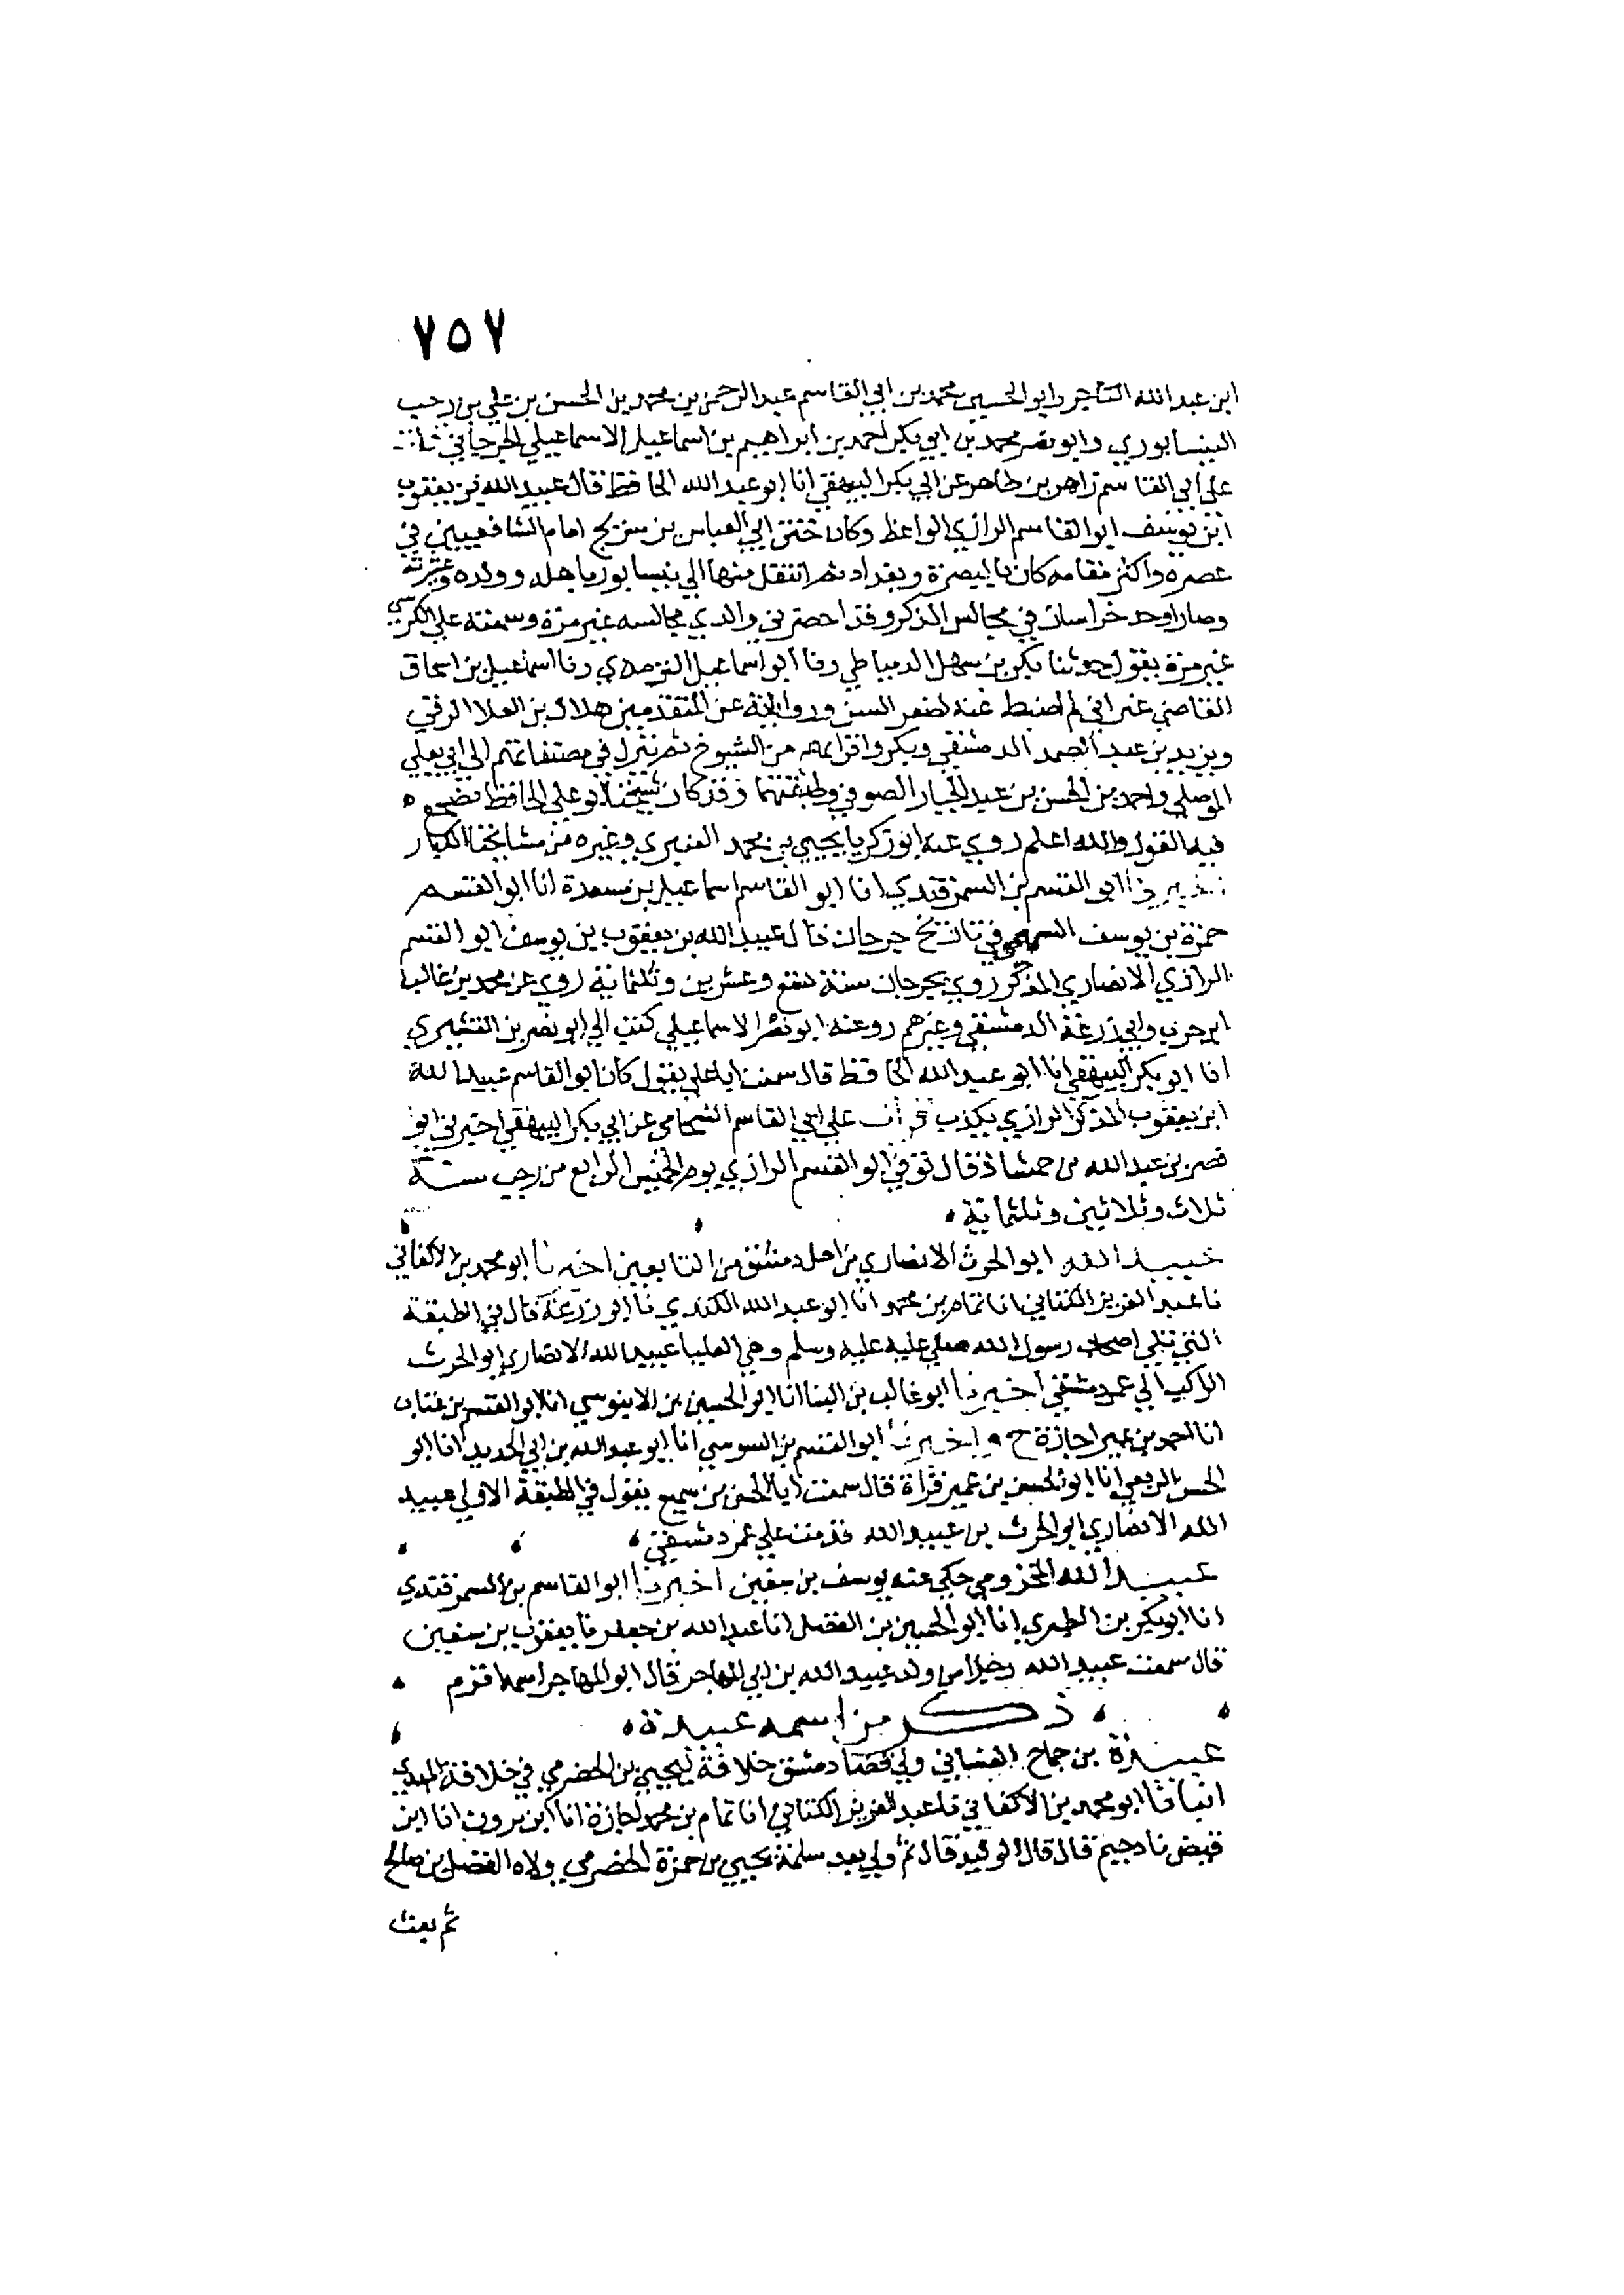 ٧٥٧
ابن عبد الله التاجر وابو الحسين محمد بن ابي القاسم عبد الرحمن بن محمد بن الحسن بن علي بن رجب
النيسابوري وابو نصر محمد بن ابي بكر احمد بن ابراهيم بن اسماعيل الاسماعيلي الجرجاني
علي ابي القاسم زاهر بن طاهر عن ابي بكر البيهقي انا ابو عبد الله الحافظ قال عبيد الله بن يعقوب
ابن يوسف ابو القاسم الرازي الواعظ وكان ختن ابي العباس بن سريج امام الشافعيين في
عصره واكثر مقامه كان بالبصرة وبغداد ثم انتقل منها الي نيسابور باهله وولده وعترته
وصار اوحد خراسان في مجالس الذكر وقد احضرني والدي مجالسه غير مرة وسمعته علي الكرسي
غير مرة يقول حدثنا بكر بن سهل الدمياطي ونا ابو اسماعيل الترمذي ونا اسماعيل بن اسحاق
القاضي غير اني لم اضبط عنه لصغر السن وروايته عن المتقدمين هلال بن العلا الرقي
ويزيد بن عبد الصمد الدمشقي وبكر واقرانهم من الشيوخ ثم نزل في مصنفاتهم الي ابي يعلي
الموصلي واحمد بن الحسن بن عبد الجبار الصوفي وطبقتهما وقد كان شيخنا ابو علي الحافظ
فيه القول والله اعلم روي عنه ابو زكريا يحيي بن محمد العنبري وغيره من مشايخنا الكبار
ابو القسم بن السمرقندي انا ابو القاسم اسماعيل بن مسعدة انا ابو القسم
حمزة بن يوسف السهمي في تاريخ جرجان قال عبيد الله بن يعقوب بن يوسف ابو القسم
الرازي الانصاري المذكر روي بجرجان سنة تسع وعشرين وثلثماية روي عن محمد بن غالب
ابن حرب وابي زرعة الدمشقي وغيرهم روعنه ابو نصر الاسماعيلي كتب الي ابو نصر بن القشيري
انا ابو بكر البيهقي انا ابو عبد الله الحافظ قال سمعت ابا علي يقول كان ابو القاسم عبيد الله
ابن يعقوب المذكر الرازي يكذب قرات علي ابي القاسم الشحامي عن ابي بكر البيهقي اخبرني ابو
نصر بن عبد الله بن حمشاذ قال توفي ابو القسم الرازي يوم الخميس الرابع من رجب سنة
ثلاث وثلاثين وثلثماية
عبيد الله ابو الحرث الانصاري من اهل دمشق من التابعين اخبرنا ابو محمد بن الاكفاني
نا عبد العزيز الكتاني انا تمام بن محمد انا ابو عبد الله الكندي نا ابو زرعة قال في الطبقة
التي تلي اصحاب رسول الله صلي عليه عليه وسلم وهي العليا عبيد الله الانصاري ابو الحرث
الراكب الي عمر دمشقي اخبرنا ابو غالب بن البنا انا ابو الحسين بن الابنوسي انا ابو القسم بن عتاب
انا احمد بن عمير اجازة ح واخبرنا ابو القسم بن السوسي انا ابو عبد الله بن ابي الحديد انا ابو
الحسن الربعي انا ابو الحسين بن عمير قراة قال سمعت ابا الحسن بن سميع يقول في الطبقة الاولي عبيد
الله الانصاري ابو الحرث بن عبيد الله قدمت علي عمر دمشقي
عبيد الله المخزومي حكي عنه يوسف بن سفين اخبرنا ابو القاسم بن السمرقندي
انا ابو بكر بن الطبري انا ابو الحسين بن الفضل انا عبد الله بن جعفر نا يعقوب بن سفين
قال سمعت عبيد الله رجلا من ولد عبيد الله بن ابي المهاجر قال ابو المهاجر اسمه اقرم
ذكر من اسمه عبيدة
عبيدة بن جماح الغساني ولي قضا دمشق خلافة ليحيي بن الحضرمي في خلافة المهدي
انبانا ابو محمد بن الاكفاني نا عبد العزيز الكتاني انا تمام بن محمد اجازة انا ابن مروان انا ابن
فيض نا دحيم قال قال الوليد قال ثم ولي بعد سلمة يحيي بن حمزة الحضرمي ولاه الفضل بن صالح
ثم بعث